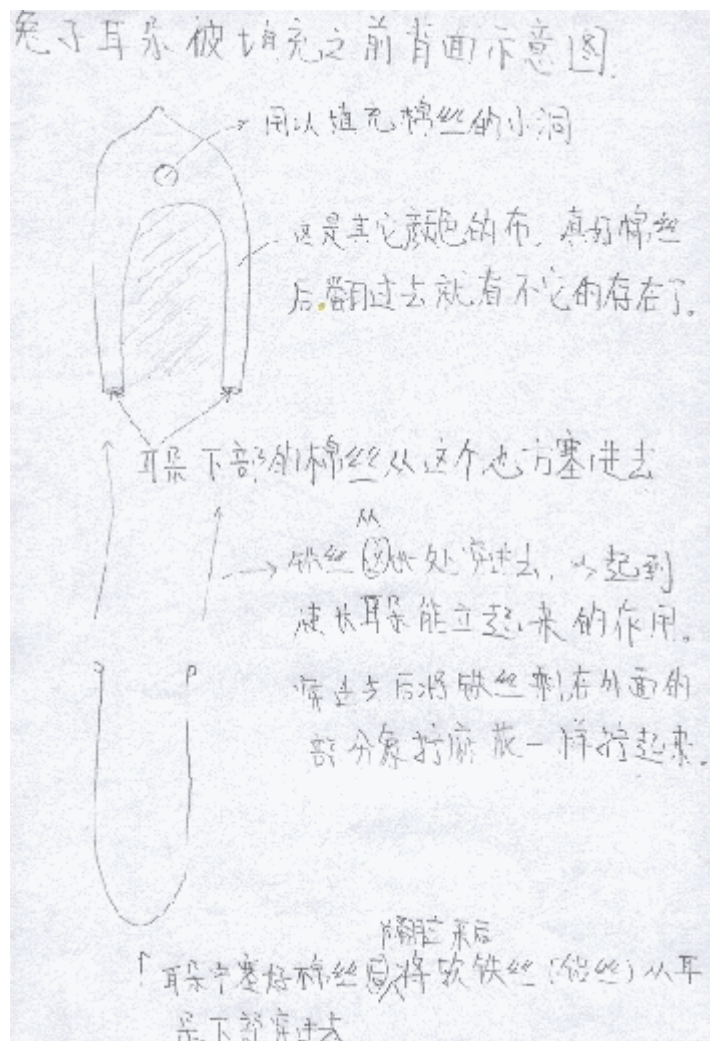 兔子耳朵被填充之前背面示意图.
用以填充棉丝的小洞
这是其它颜色的布,真好棉丝
后.翻过去就看不它的存在了.
耳朵下部的棉丝从这个地方塞进去
从
铁丝 此处穿进去,以起到
使长耳朵能立起来的作用.
穿进去后将铁丝剩在外面的
部分象拧麻花一样拧起来.
翻过来后
耳朵中塞好棉丝 将软铁丝(铝丝)从耳
朵下部穿进去